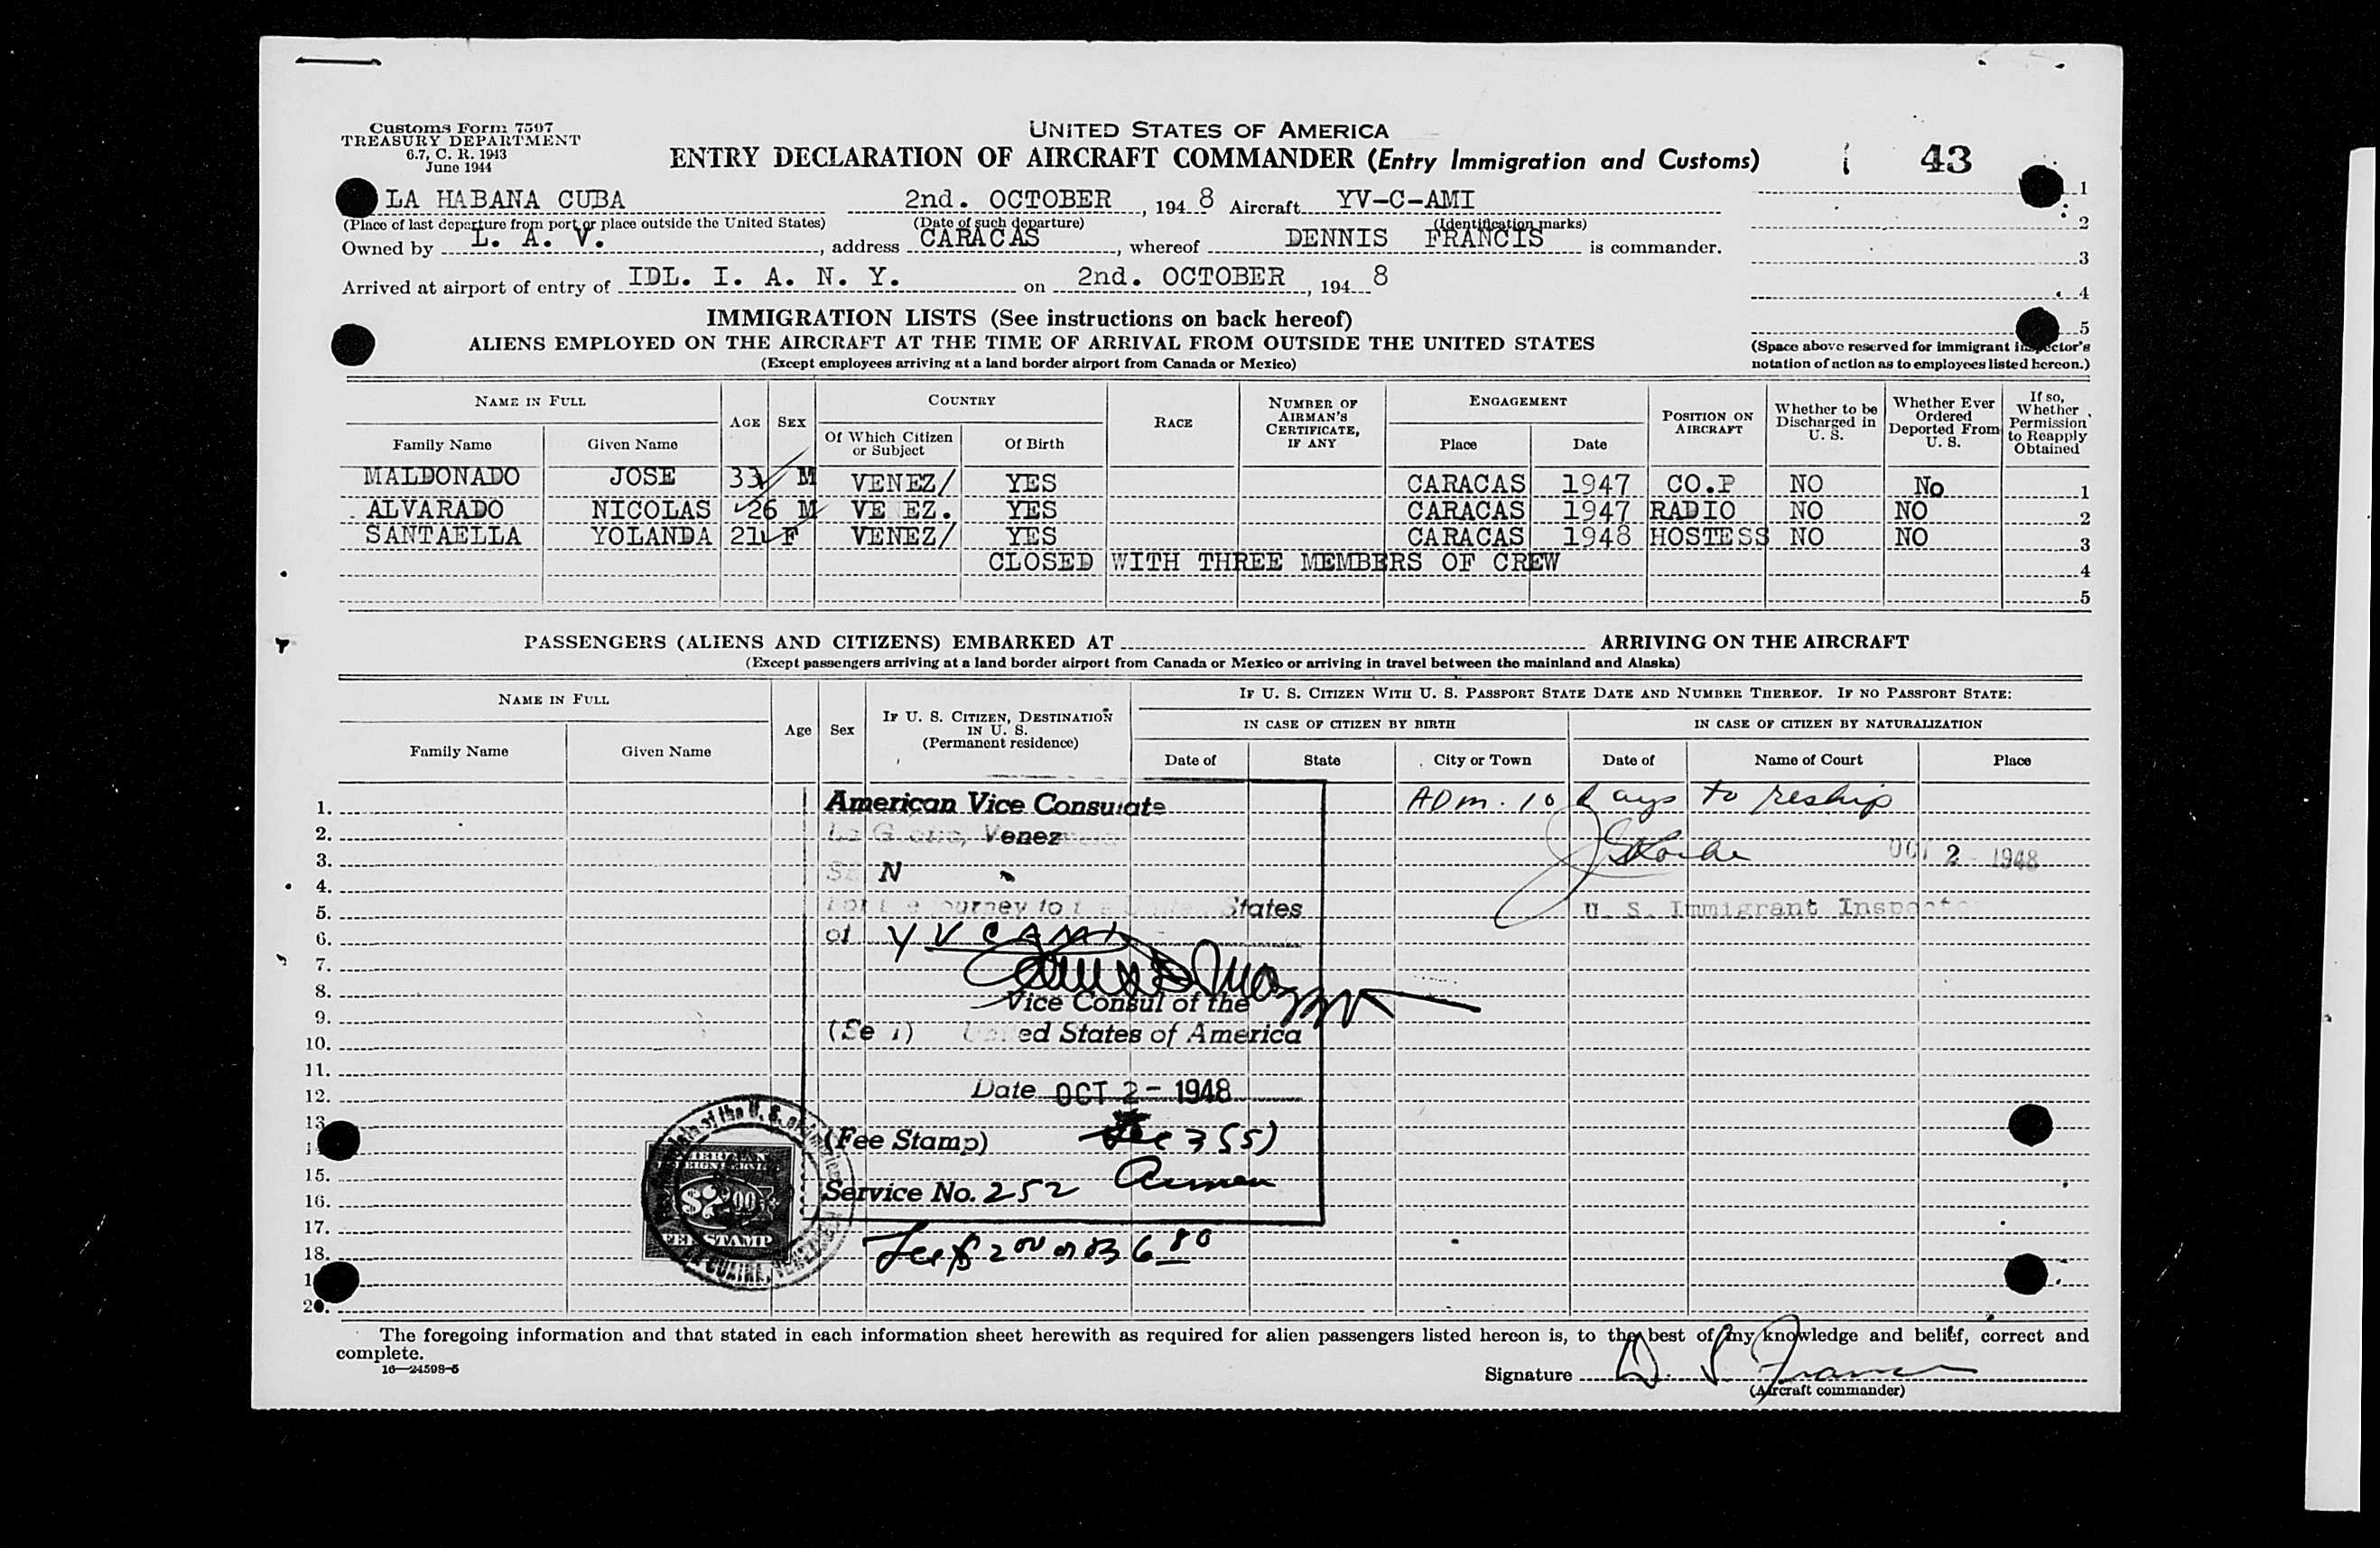 Customs Form 7507
TREASURY DEPARTMENT
6.7, C. R. 1943
June 1944
UNITED STATES OF AMERICA
ENTRY DECLARATION OF AIRCRAFT COMMANDER (Entry Immigration and Customs)
43
LA HABANA CUBA 2nd. OCTOBER, 1948 Aircraft YV-C-AMI
(Place of last departure from port or place outside the United States) (Date of such departure) (Identification marks)
Owned by L. A. V., address CARACAS, whereof DENNIS FRANCIS is commander.
Arrived at airport of entry of IDL. I. A. N. Y. on 2nd. OCTOBER, 1948
1
2
3
4
5
(Space above reserved for immigrant inspector's
notation of action as to employees listed hereon.)
IMMIGRATION LISTS (See instructions on back hereof)
ALIENS EMPLOYED ON THE AIRCRAFT AT THE TIME OF ARRIVAL FROM OUTSIDE THE UNITED STATES
(Except employees arriving at a land border airport from Canada or Mexico)
NAME IN FULL AGE SEX COUNTRY RACE NUMBER OF AIRMAN'S CERTIFICATE, IF ANY ENGAGEMENT POSITION ON AIRCRAFT Whether to be Discharged in U. S. Whether Ever Ordered Deported From U. S. If so, Whether Permission to Reapply Obtained
Family Name Given Name Of Which Citizen or Subject Of Birth Place Date
MALDONADO JOSE 33 M VENEZ/ YES CARACAS 1947 CO.P NO No 1
ALVARADO NICOLAS 26 M VE EZ. YES CARACAS 1947 RADIO NO NO 2
SANTAELLA YOLANDA 21 F VENEZ/ YES CARACAS 1948 HOSTESS NO NO 3
CLOSED WITH THREE MEMBERS OF CREW 4
5
PASSENGERS (ALIENS AND CITIZENS) EMBARKED AT ARRIVING ON THE AIRCRAFT
(Except passengers arriving at a land border airport from Canada or Mexico or arriving in travel between the mainland and Alaska)
NAME IN FULL Age Sex IF U. S. CITIZEN, DESTINATION IN U. S. (Permanent residence) IF U. S. CITIZEN WITH U. S. PASSPORT STATE DATE AND NUMBER THEREOF. IF NO PASSPORT STATE:
IN CASE OF CITIZEN BY BIRTH IN CASE OF CITIZEN BY NATURALIZATION
Family Name Given Name Date of State City or Town Date of Name of Court Place
1. American Vice Consulate ADm. 10 days to reship
2. Venez
3. N OCT 2 - 1948
4.
5. journey to States U. S. Immigrant Inspecto
6. of YVCAMI
7.
8. Vice Consul of the
9.
10. ed States of America
11.
12. Date OCT 2 - 1948
13.
(Fee Stamp)
15.
16. Service No. 252
17.
18. Fee $ 2 00 or Bs 6 80
20.
AMERICAN
FOREIGN SERVICE
$2.00
FEE STAMP
of the U. S. of America
LA GUAIRA, VENEZ
The foregoing information and that stated in each information sheet herewith as required for alien passengers listed hereon is, to the best of my knowledge and belief, correct and
complete.
16—24598-5
Signature D. S. Francis
(Aircraft commander)